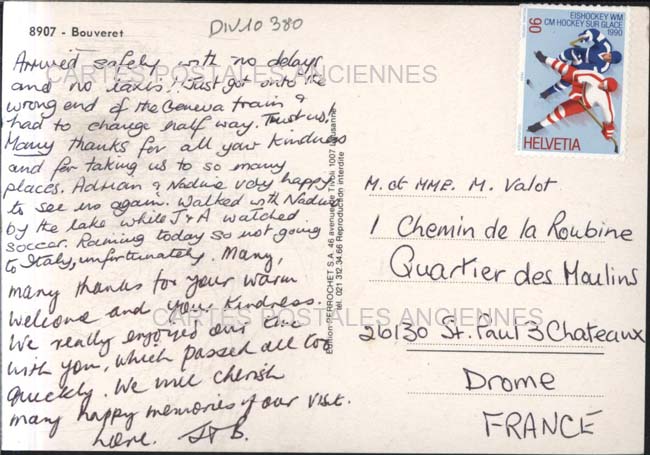 DIV10 380
8907 - Bouveret
Arrived safely with no delays
and no taxis! Just got onto the
wrong end of the Geneva train &
had to change half way. Trust us!
Many thanks for all your kindness
and for taking us to so many
places. Adrian & Nadine very happy
to see us again. Walked with Nadine
by the lake while J & A watched
soccer. Raining today so not going
to Italy, unfortunately. Many,
many thanks for your warm
welcome and your kindness.
We really enjoyed our time
with you, which passed all too
quickly. We will cherish
many happy memories of our visit
here. J & B.
Edition PERROCHET S.A. 46 avenue de Tivoli 1007 Lausanne
tél. 021 312.34.66 Reproduction interdite
90
EISHOCKEY WM
CM HOCKEY SUR GLACE
1990
HELVETIA
M. et MME. M. Valot
1 Chemin de la Roubine
Quartier des Moulins
26130 St. Paul 3 Chateaux
Drome
FRANCE
CARTES POSTALES ANCIENNES
CARTES POSTALES ANCIENNES